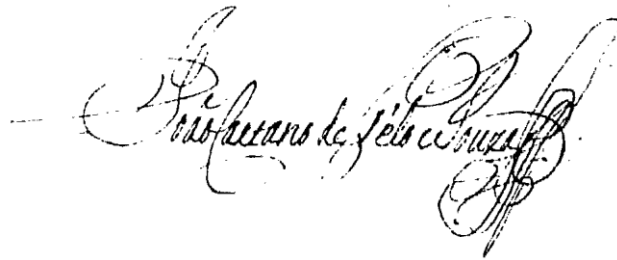 João Caetano de Mélo e Souza